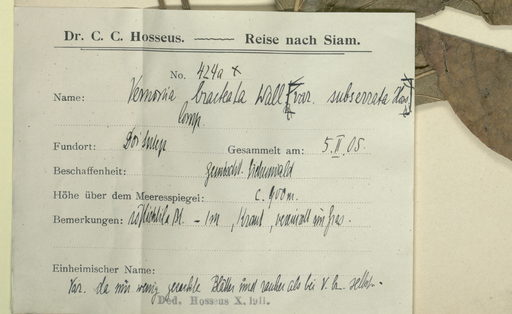 Dr. C. C. Hosseus. Reise nach Siam.
No. 424a x
Name: Vernonia bracteata Wall [var. subserrata Hoss]
Comp.
Fundort: Doi Sutep Gesammelt am: 5. II. 05.
Beschaffenheit: gemischt. Eichenwald
Höhe über dem Meeresspiegel: c. 900 m.
Bemerkungen: Bl. – 1 m, Kraut,
Einheimischer Name:
Var. da nur wenig gezackte Blätter und als bei V.
Ded. Hosseus X. 1911.